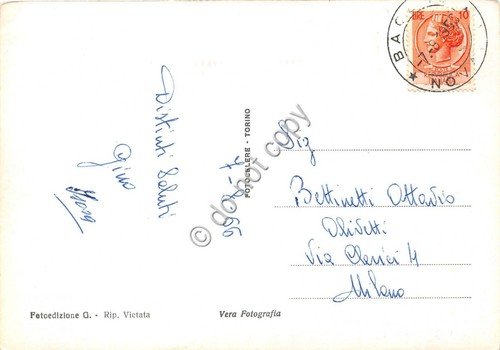 Distinti Saluti
Gino
FOTOCELERE - TORINO
© do not copy
LIRE 10
BAC
NOV
Bettinetti Ottavio
Olivetti
Via Clerici 4
Milano
Fotoedizione G. - Rip. Vietata
Vera Fotografia